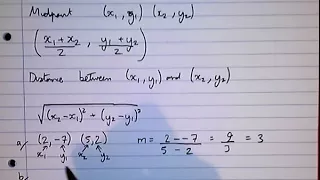 Midpoint (x₁, y₁) (x₂, y₂)
(x₁+x₂/2, y₁+y₂/2)
Distance between (x₁, y₁) and (x₂, y₂)
√(x₂-x₁)² + (y₂-y₁)²
a/ (2,-7) (5,2) m = 2--7/5-2 = 9/3 = 3
x₁ y₁ x₂ y₂
b/